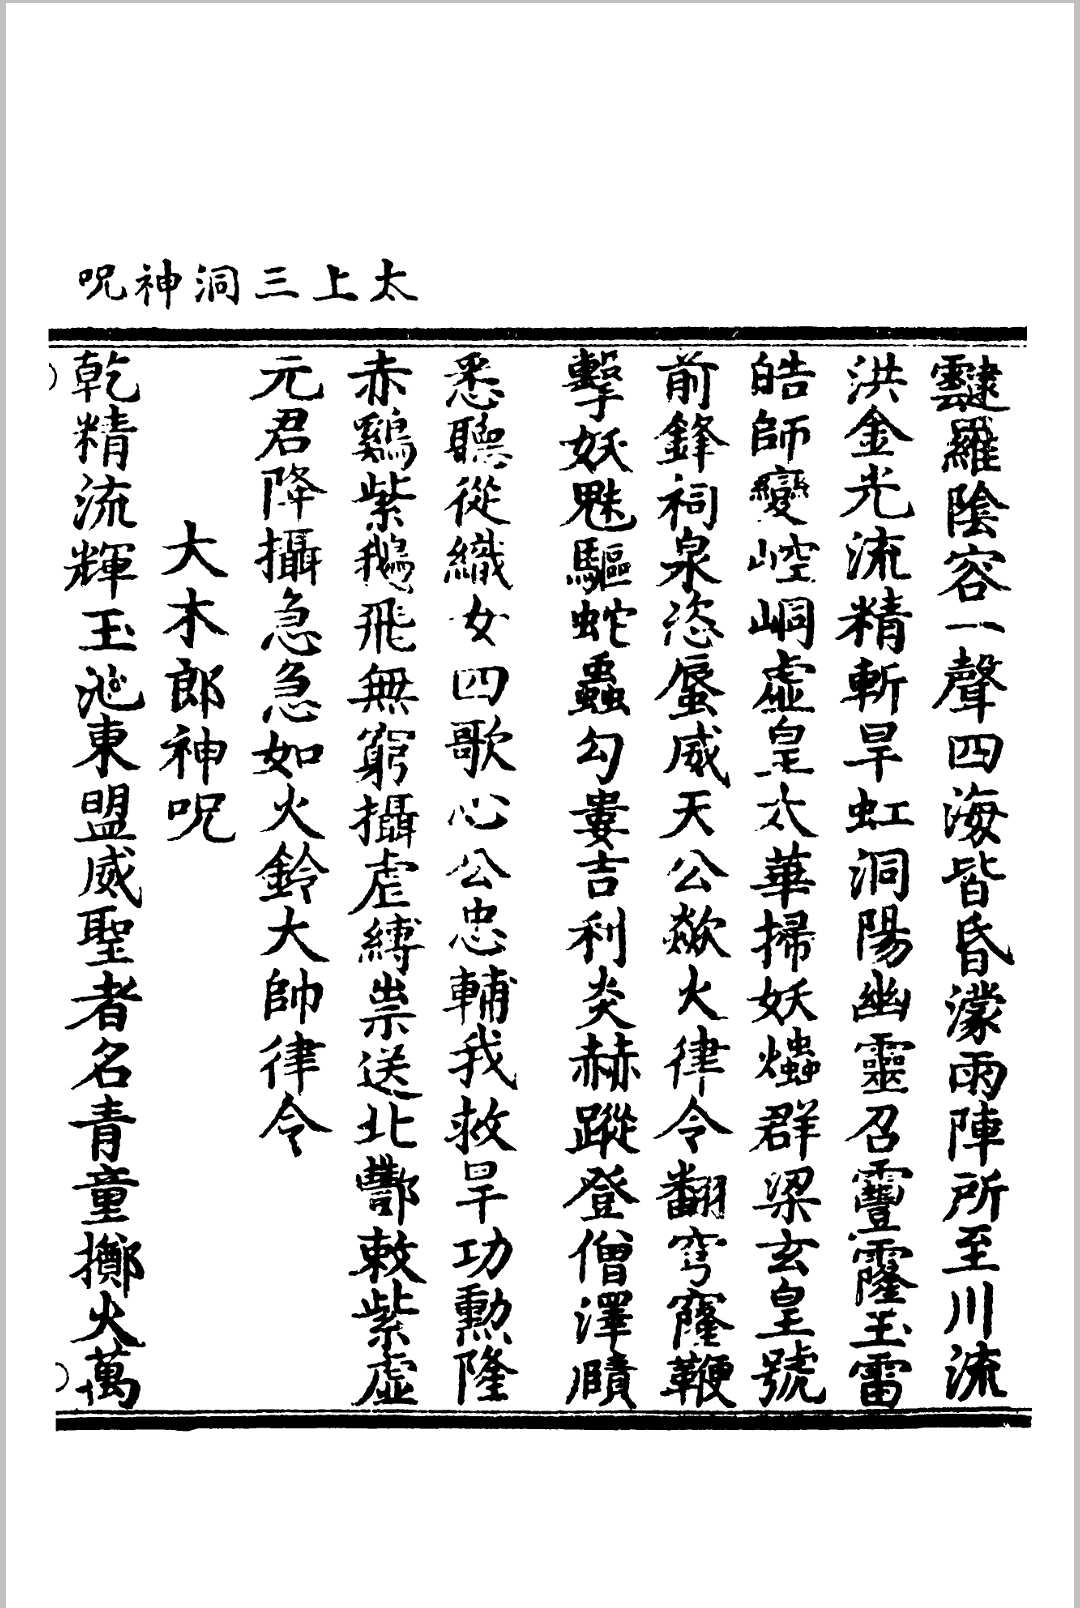 太上三洞神呪
靆羅陰容一聲四海皆昏濛雨陣所至川流
洪金光流精斬旱虹洞陽幽靈召靊霳玉雷
皓師變崆峒虛皇太華掃妖爞群梁玄皇號
前鋒祠泉恣蜃威天公歘火律令翻穹窿鞭
擊妖魃驅蛇蟲勾婁吉利炎赫蹤登僧澤牘
悉聽從織女四歌心公忠輔我救旱功勲隆
赤鷄紫鵝飛無窮攝虐縛祟送北酆敕紫虛
元君降攝急急如火鈴大帥律令
大木郎神呪
乾精流輝玉池東盟威聖者名青童擲火萬